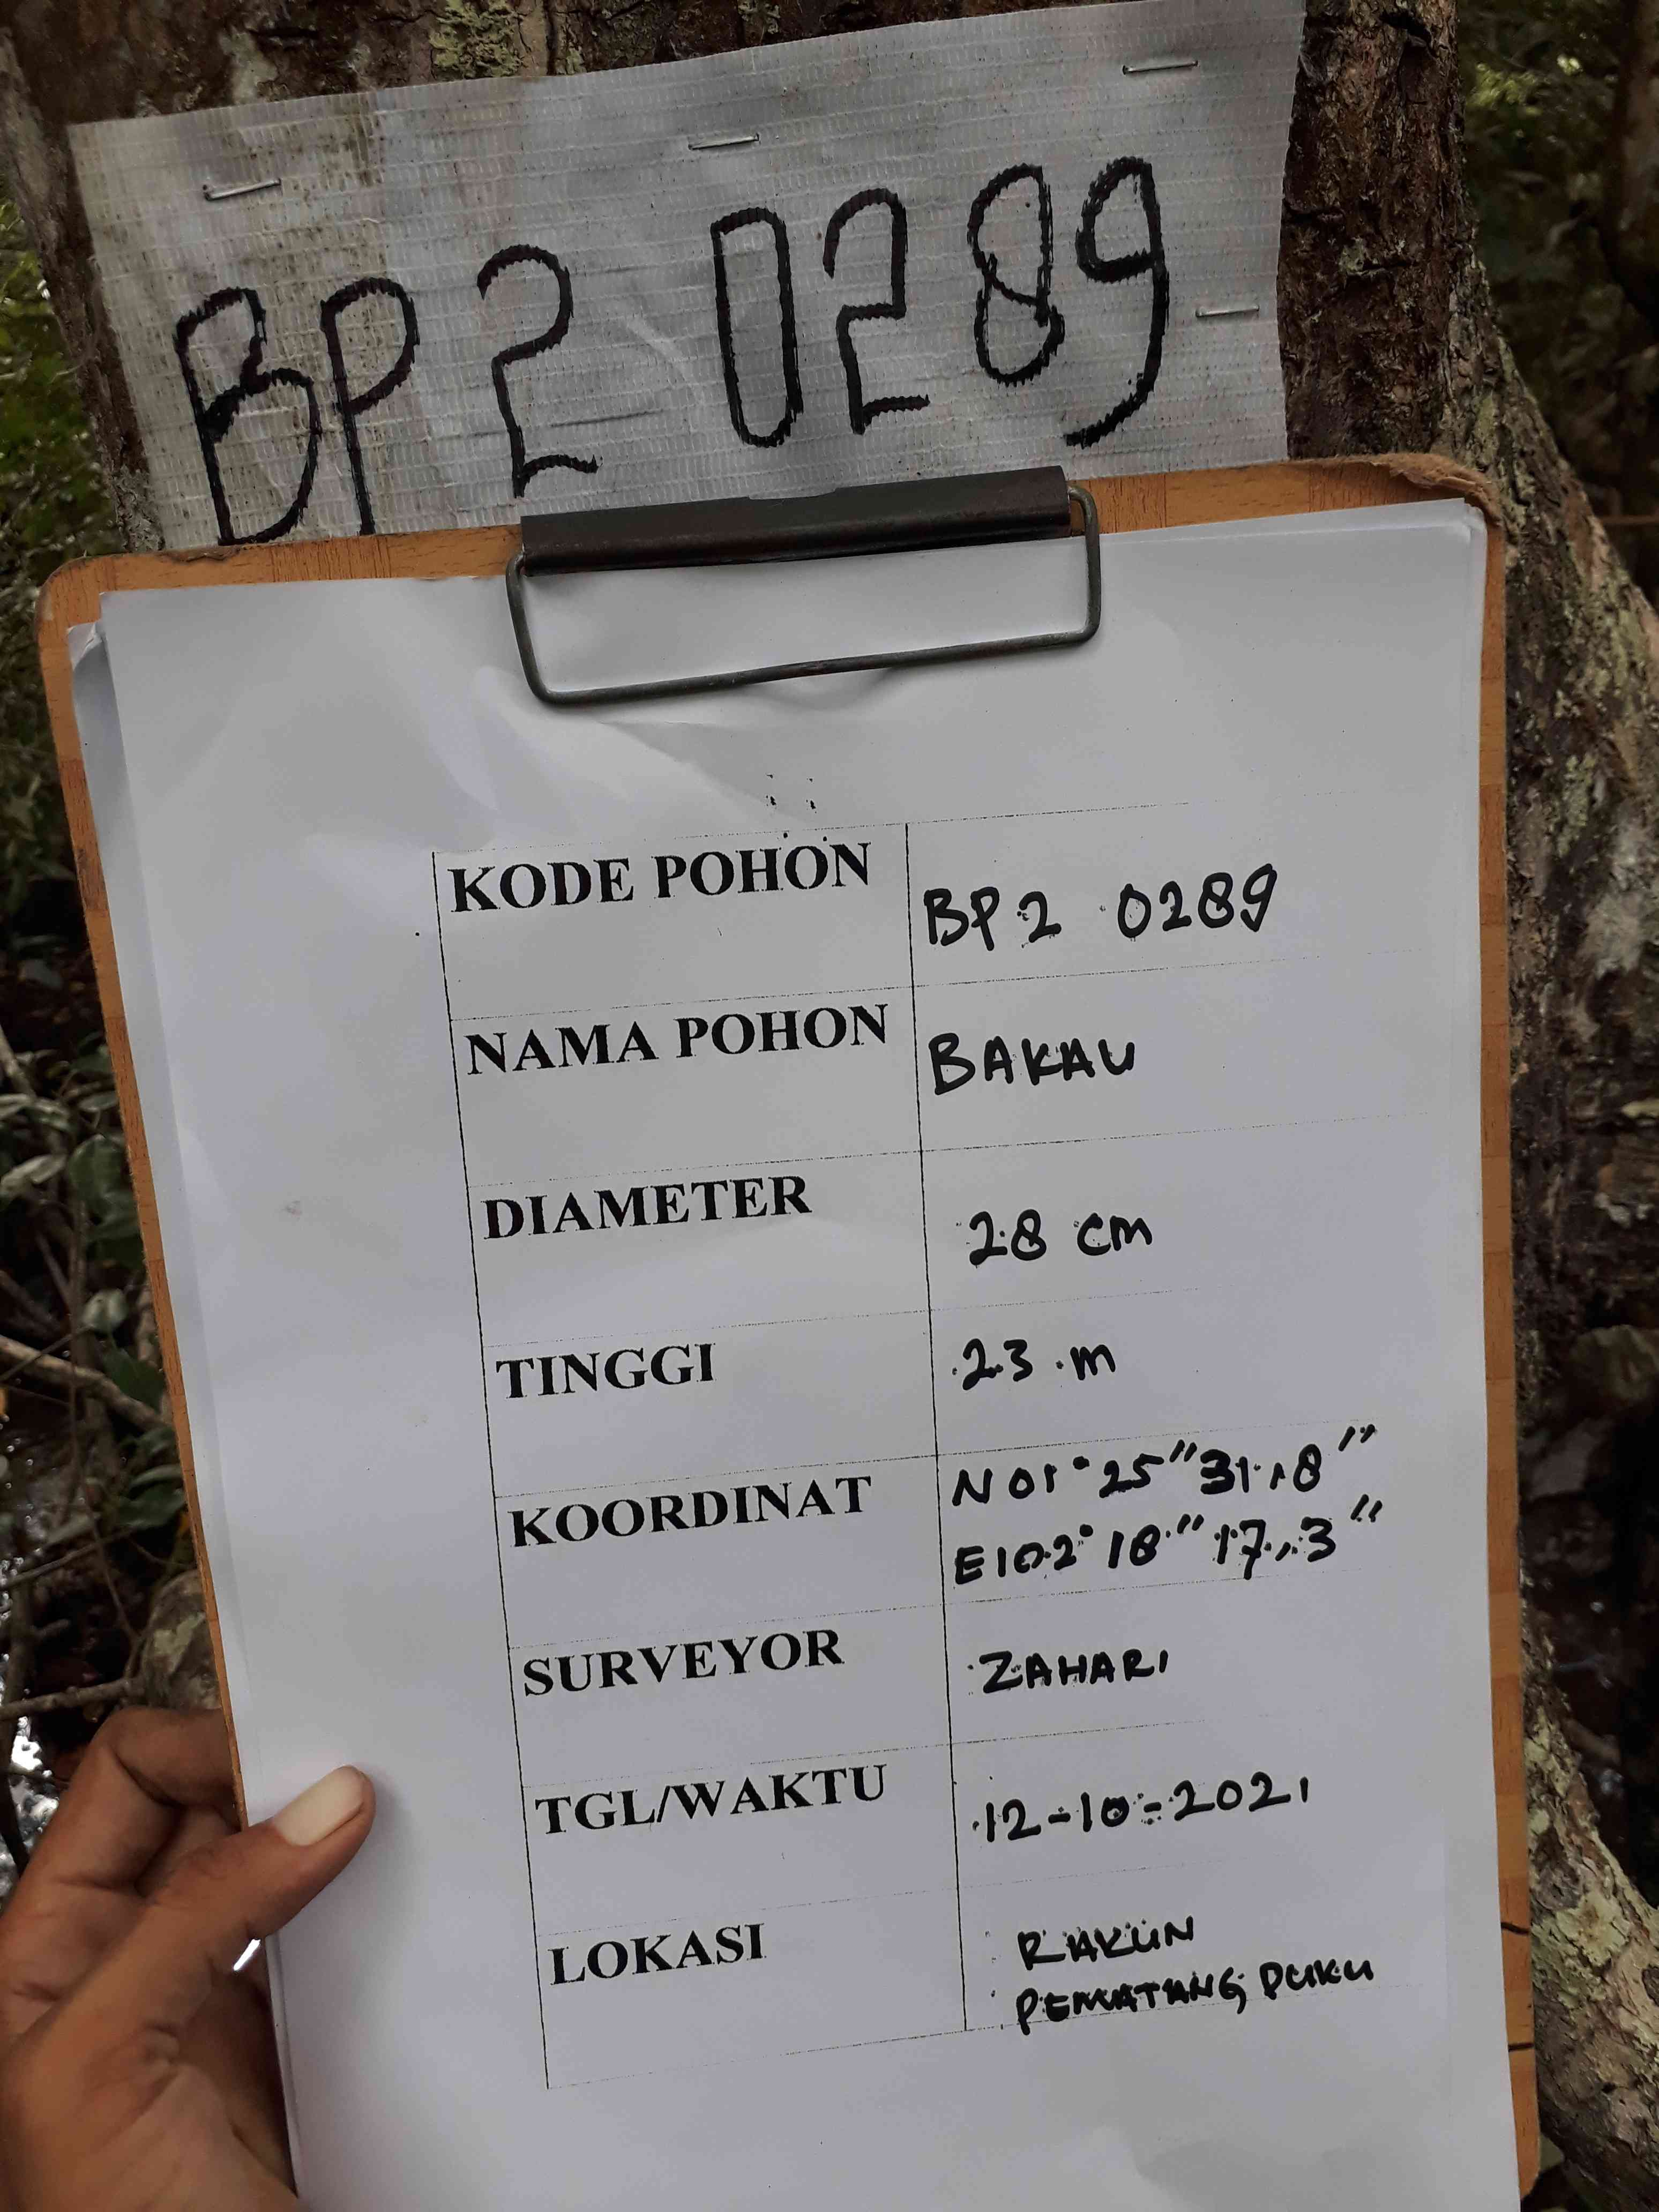 BP 2 0289
KODE POHON BP 2 0289
NAMA POHON BAKAU
DIAMETER 28 cm
TINGGI 23 m
KOORDINAT N 01° 25" 31,8"
E 102° 18" 17,3"
SURVEYOR ZAHARI
TGL/WAKTU 12-10-2021
LOKASI RAKUN
PEMATANG DUKU